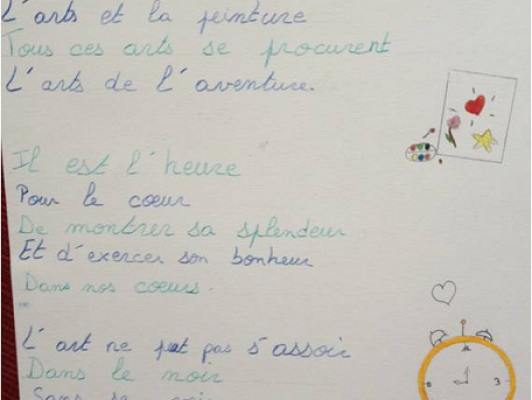 L'arts et la peinture
Tous ces arts se procurent
L'arts de l'aventure.
Il est l'heure
Pour le cœur
De montrer sa splendeur
Et d'exercer son bonheur
Dans nos cœurs.
L'art ne peut pas s'assoir
Dans le noir
Sans se
3